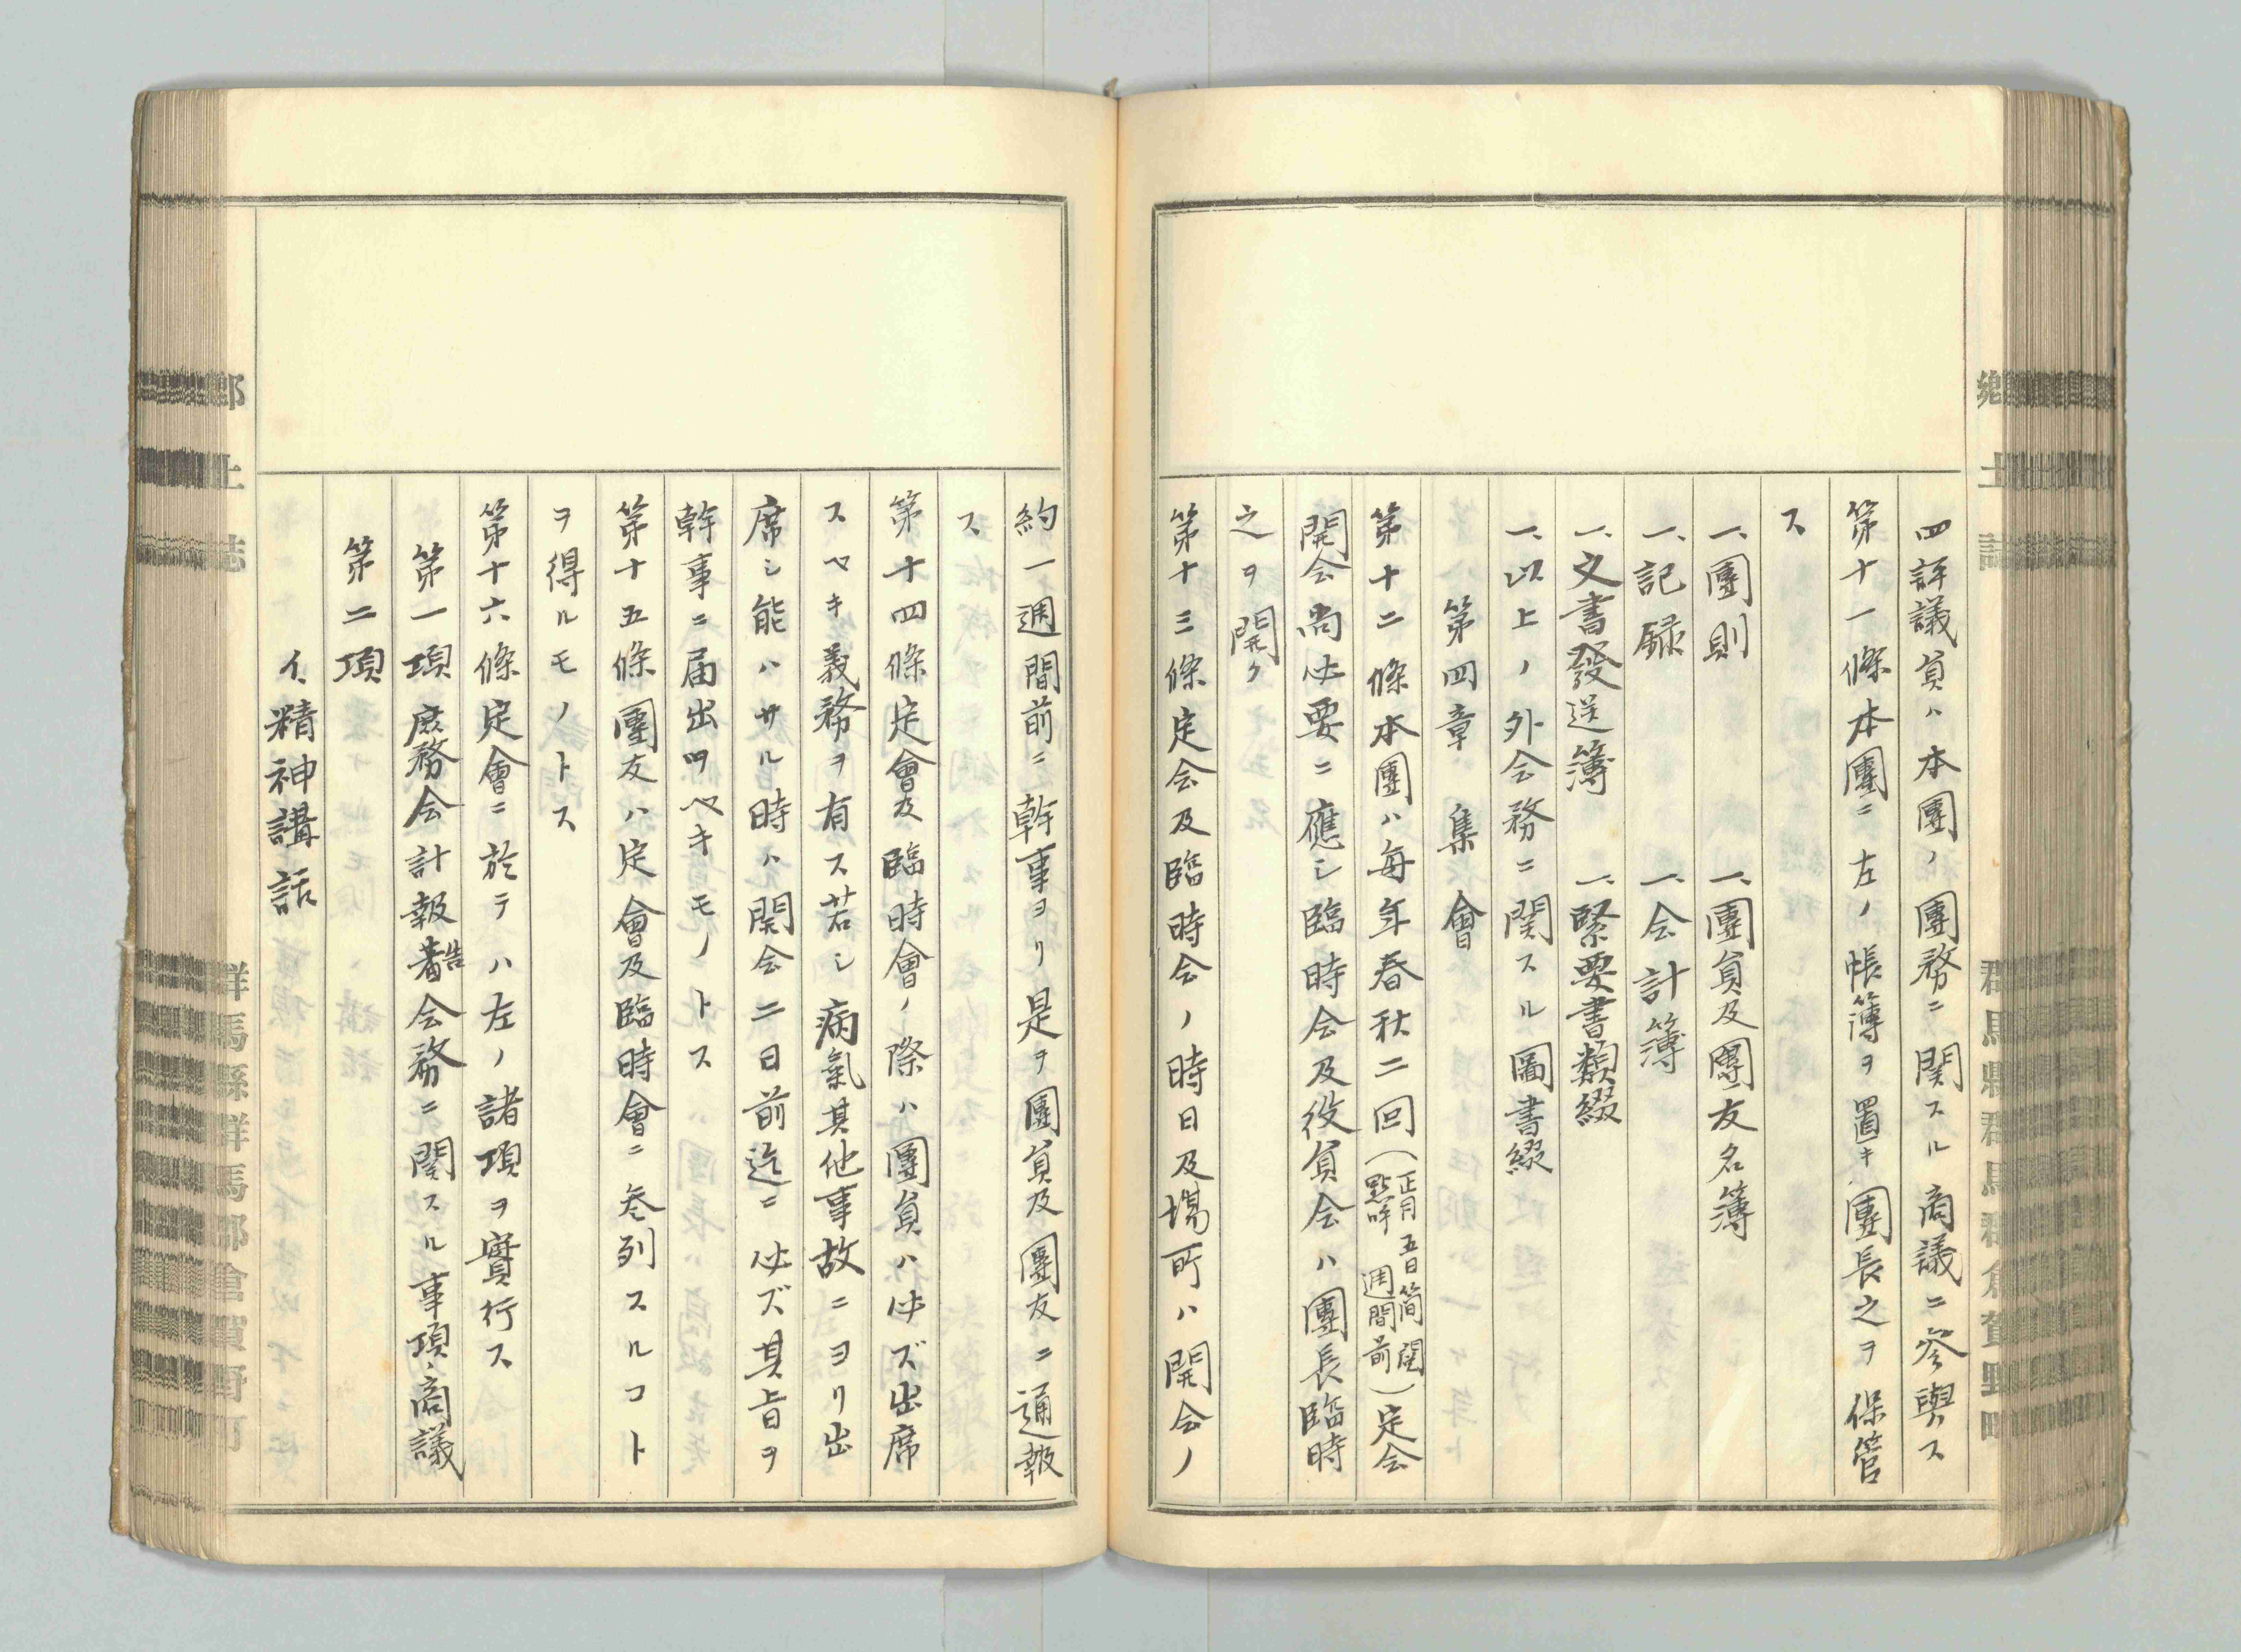 四評議員ハ本團ノ團務ニ関スル商議ニ參與ス
第十一條本團ニ左ノ帳簿ヲ置キ團長之ヲ保管
ス
一、團則　一、團員及團友名簿
一、記録　一、会計簿
一、文書發送簿　一、緊要書類綴
一、以上ノ外会務ニ関スル圖書綴
第四章　集會
第十二條本團ハ毎年春秋二回（正月五日簡閲點呼週間前）定会
開会尚必要ニ應シ臨時会及役員会ハ團長臨時
之ヲ開ク
第十三條定会及臨時会ノ時日及場所ハ開会ノ
約一週間前ニ幹事ヨリ是ヲ團員及團友ニ通報
ス
第十四條定會及臨時會ノ際ハ團員ハ必ズ出席
スベキ義務ヲ有ス若シ病氣其他事故ニヨリ出
席シ能ハサル時ハ開会二日前迄ニ必ズ其旨ヲ
幹事ニ届出ツベキモノトス
第十五條團友ハ定會及臨時會ニ参列スルコト
ヲ得ルモノトス
第十六條定會ニ於テハ左ノ諸項ヲ實行ス
第一項　庶務会計報告会務ニ関スル事項、商議
第二項
イ、精神講話
郷土誌
群馬縣群馬郡倉賀野町
郷土誌
群馬縣群馬郡倉賀野町